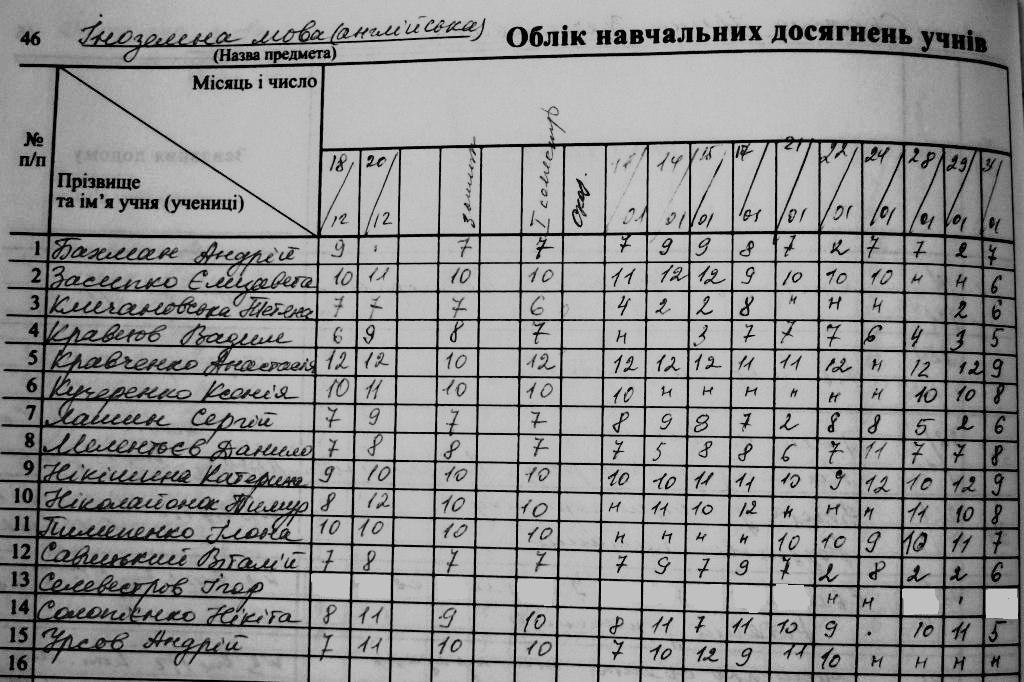 46 Іноземна мова (англійська) Облік навчальних досягнень учнів
(Назва предмета)
Місяць і число
№ п/п
Прізвище та ім’я учня (учениці)
18/12 20/12 І семестр Скор. /01 14/01 15/01 17/01 21/01 22/01 24/01 28/01 29/01 31/01
1 Бахман Андрій 9 7 7 7 9 9 8 7 2 7 7 2 7
2 Засипко Єлизавета 10 11 10 10 11 12 12 9 10 10 10 н н 6
3 Тетяна 7 7 7 6 4 2 2 8 н н н 2 6
4 Вадим 6 9 8 7 н 3 7 7 7 6 4 3 5
5 Кравченко Анастасія 12 12 10 12 12 12 12 11 11 12 н 12 12 9
6 Кучеренко Ксенія 10 11 10 10 10 н н н н н н 10 10 8
7 Сергій 7 9 7 7 8 9 8 7 2 8 8 5 2 6
8 Мелентьєв Данило 7 8 8 7 7 5 8 8 6 7 11 7 7 8
9 Нікішина Катерина 9 10 10 10 10 10 11 11 10 9 12 10 12 9
10 Тимур 8 12 10 10 н 11 10 12 н н н 11 10 8
11 Пилипенко Ілона 10 10 10 10 н н н н 10 10 9 10 11 7
12 Савицький Віталій 7 8 7 7 7 9 7 9 7 2 8 2 2 6
13 Селевестров Ігор н н
14 Солопієнко Нікіта 8 11 9 10 8 11 7 11 10 9 10 11 5
15 Урсов Андрій 7 11 10 10 7 10 12 9 11 10 н н н н
16